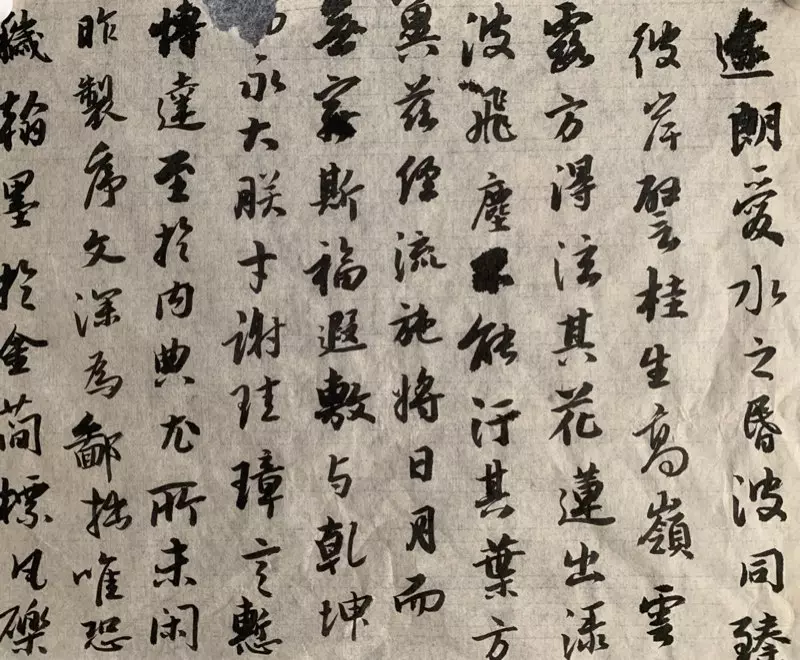 途朗愛水之昬波同臻
彼岸譬桂生高嶺雲
露方得泫其花蓮出淥
波飛塵不能汙其葉方
冀茲經流施將日月而
無窮斯福遐敷與乾坤
永大朕才謝珪璋言慙
博達至於內典尤所未閑
昨製序文深為鄙拙唯恐
穢翰墨於金簡標瓦礫